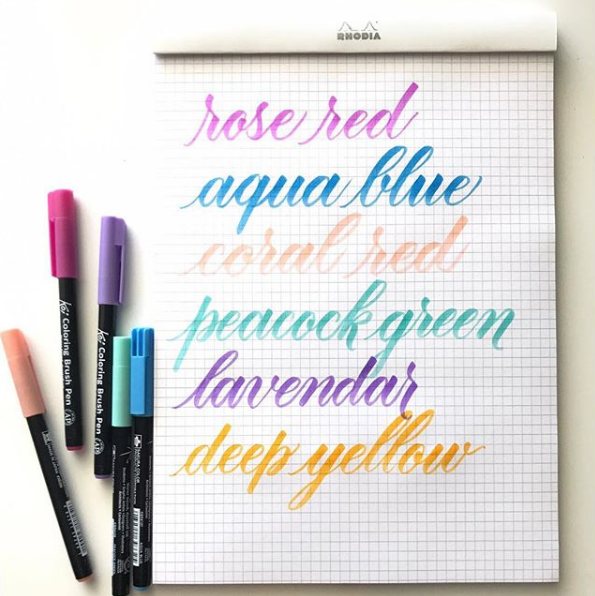 RHODIA
rose red
aqua blue
coral red
peacock green
lavendar
deep yellow
Koi Coloring Brush Pen
Koi Coloring Brush Pen